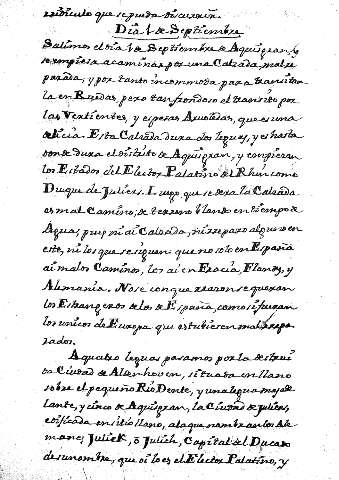 ridiculo que se pueda discurrir.
Dia 1 de Septiembre
Salimos el dia 1 de Septiembre de Aquisgran, y
se empieza a caminar por una Calzada, mal re
parada, y por tanto incommoda para transitar
la en Ruedas, pero tan frondoso el transito por
las Vertientes, y espesas Arboledas, que es una
delicia. Esta Calzada dura dos leguas, y es hasta
donde dura el distrito de Aquisgran, y empiezan
los Estados del Elector Palatino del Rhin como
Duque de Juliers. Luego que se dexa la Calzada
es mal Camino, de terreno blando en tiempo de
Aguas, pues ni ai Calzada, ni reparo alguno en
este, ni los que se siguen que no solo en España
ai malos Caminos, los ai en Francia, Flandes, y
Alemania. No se con que razon se quexan
los Estrangeros de los de España, como si fueran
los unicos de Europa que estubiesen mal repa
rados.
A quatro leguas pasamos por la destrui
da Ciudad de Aldenhoven, situada en llano
sobre el pequeño Rio Dente, y una legua mas ade
lante, y cinco de Aquisgran, la Ciudad de Juliers,
edificada en sitio llano, a la que nombran los Ale
manes Julick, ò Julich, Capital del Ducado
de su nombre, que oi lo es el Elector Palatino, y